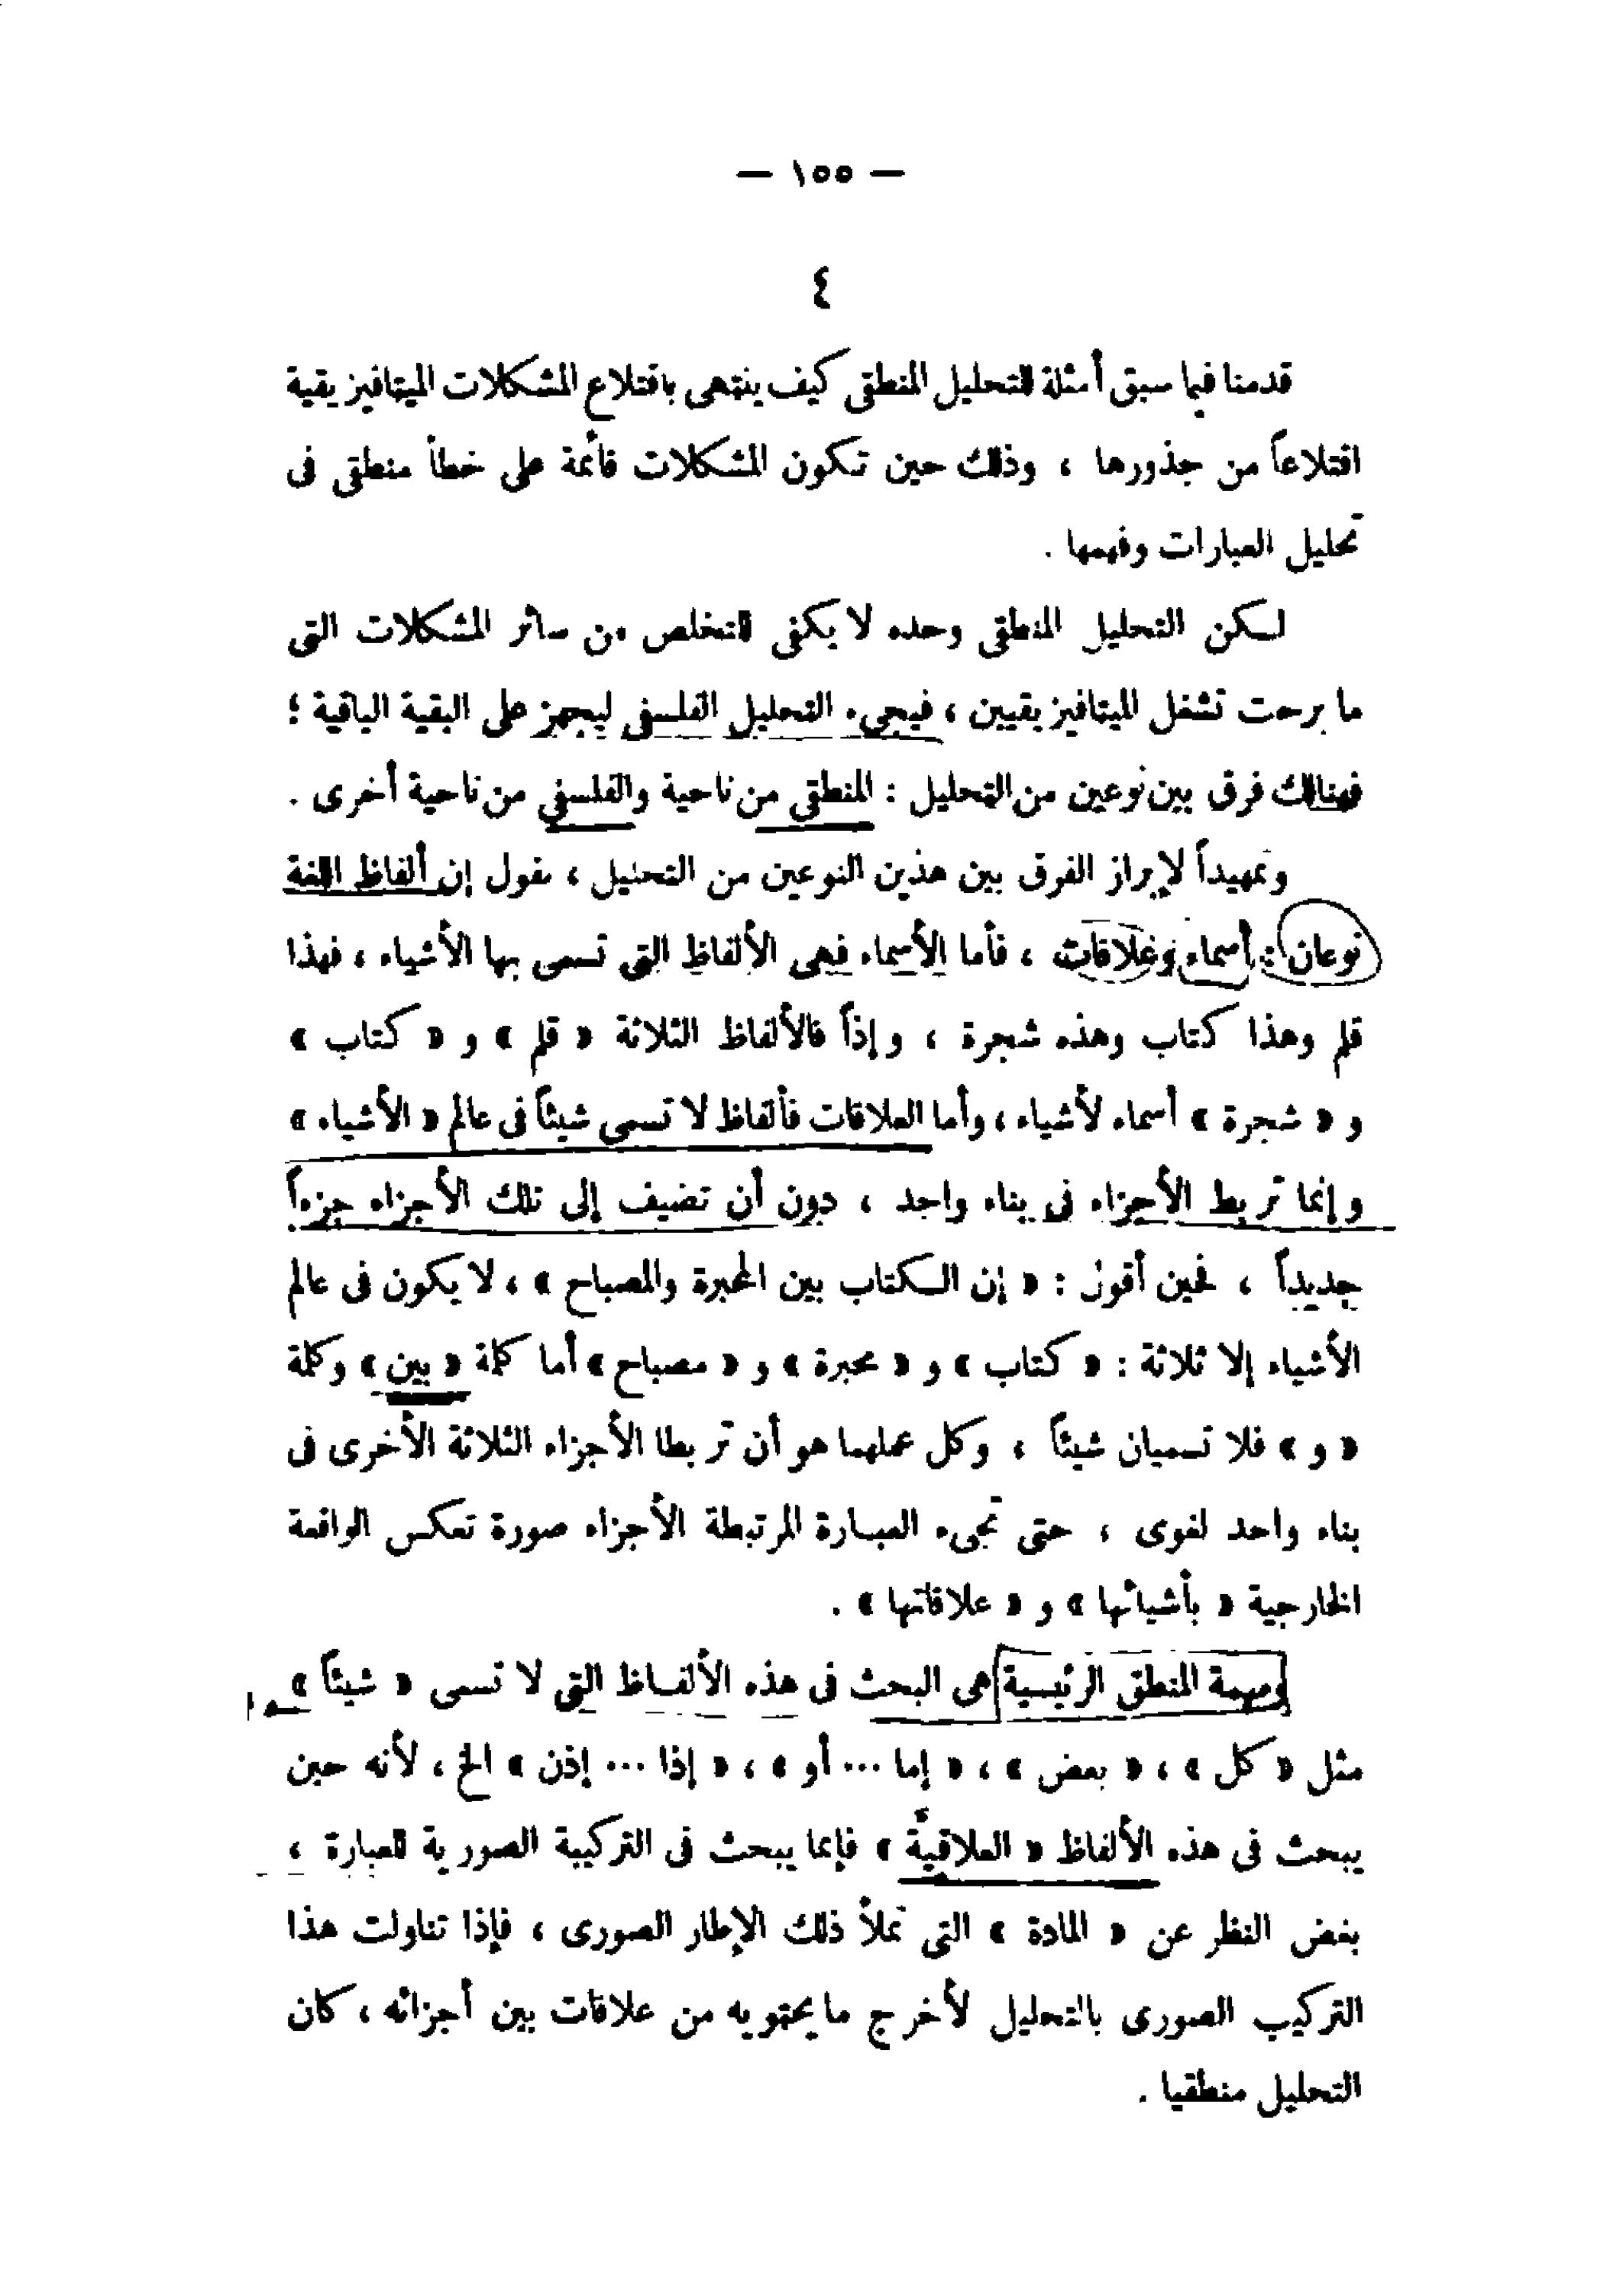 — ١٥٥ —
٤
قدمنا فيما سبق أمثلة للتحليل المنطقى كيف ينتهى باقتلاع المشكلات الميتافيزيقية
اقتلاعاً من جذورها ، وذلك حين تكون المشكلات قائمة على خطأ منطقى فى
تحليل العبارات وفهمها .
لكن التحليل المنطقى وحده لا يكفى للتخلص من سائر المشكلات التى
ما برحت تشغل الميتافيزيقيين ، فيجىء التحليل الفلسفى ليجهز على البقية الباقية ؛
فهنالك فرق بين نوعين من التحليل : المنطقى من ناحية والفلسفى من ناحية أخرى .
وتمهيداً لإبراز الفرق بين هذين النوعين من التحليل ، نقول إن ألفاظ اللغة
نوعان : أسماء وعلاقات ، فأما الأسماء فهى الألفاظ التى تسمى بها الأشياء ، فهذا
قلم وهذا كتاب وهذه شجرة ، وإذاً فالألفاظ الثلاثة « قلم » و « كتاب »
و « شجرة » أسماء لأشياء ، وأما العلاقات فألفاظ لا تسمى شيئاً فى عالم « الأشياء »
وإنما تربط الأجزاء فى بناء واحد ، دون أن تضيف إلى تلك الأجزاء جزءاً
جديداً ، فحين أقول : « إن الكتاب بين المحبرة والمصباح » ، لا يكون فى عالم
الأشياء إلا ثلاثة : « كتاب » و « محبرة » و « مصباح » أما كلمة « بين » وكلمة
« و » فلا تسميان شيئاً ، وكل عملهما هو أن تربطا الأجزاء الثلاثة الأخرى فى
بناء واحد لغوى ، حتى تجىء العبارة المرتبطة الأجزاء صورة تعكس الواقعة
الخارجية « بأشيائها » و « علاقاتها » .
ومهمة المنطق الرئيسية هى البحث فى هذه الألفاظ التى لا تسمى « شيئاً »
مثل « كل » ، « بعض » ، « إما ... أو » ، « إذا ... إذن » الخ ، لأنه حين
يبحث فى هذه الألفاظ « العلاقيّة » فإنما يبحث فى التركيبة الصورية للعبارة ،
بغض النظر عن « المادة » التى تملأ ذلك الإطار الصورى ، فإذا تناولت هذا
التركيب الصورى بالتحليل لأخرج ما يحتويه من علاقات بين أجزائه ، كان
التحليل منطقيا .